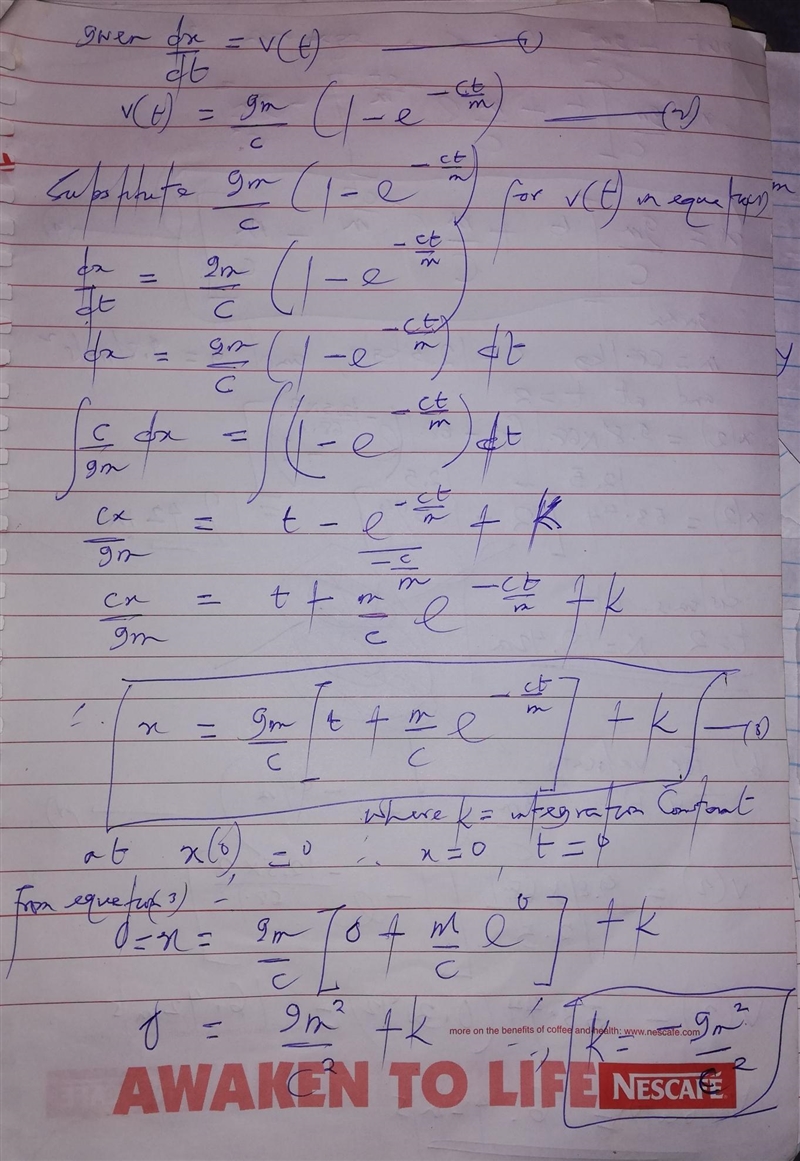 given dx/dt = v(t) — (1)
v(t) = gm/c (1 - e^(-ct/m)) — (2)
Substitute gm/c (1 - e^(-ct/m)) for v(t) in equation
dx/dt = gm/c (1 - e^(-ct/m))
dx = gm/c (1 - e^(-ct/m)) dt
∫ c/gm dx = ∫ (1 - e^(-ct/m)) dt
cx/gm = t - e^(-ct/m)/(-c/m) + k
cx/gm = t + m/c e^(-ct/m) + k
∴ x = gm/c [t + m/c e^(-ct/m)] + k — (3)
where k = integration Constant
at x(0) = 0 ∴ x = 0 t = 0
From equation (3)
0 = x = gm/c [0 + m/c e^0] + k
0 = gm²/c² + k ∴ k = -gm²/c²
more on the benefits of coffee and health: www.nescafe.com
AWAKEN TO LIFE NESCAFÉ